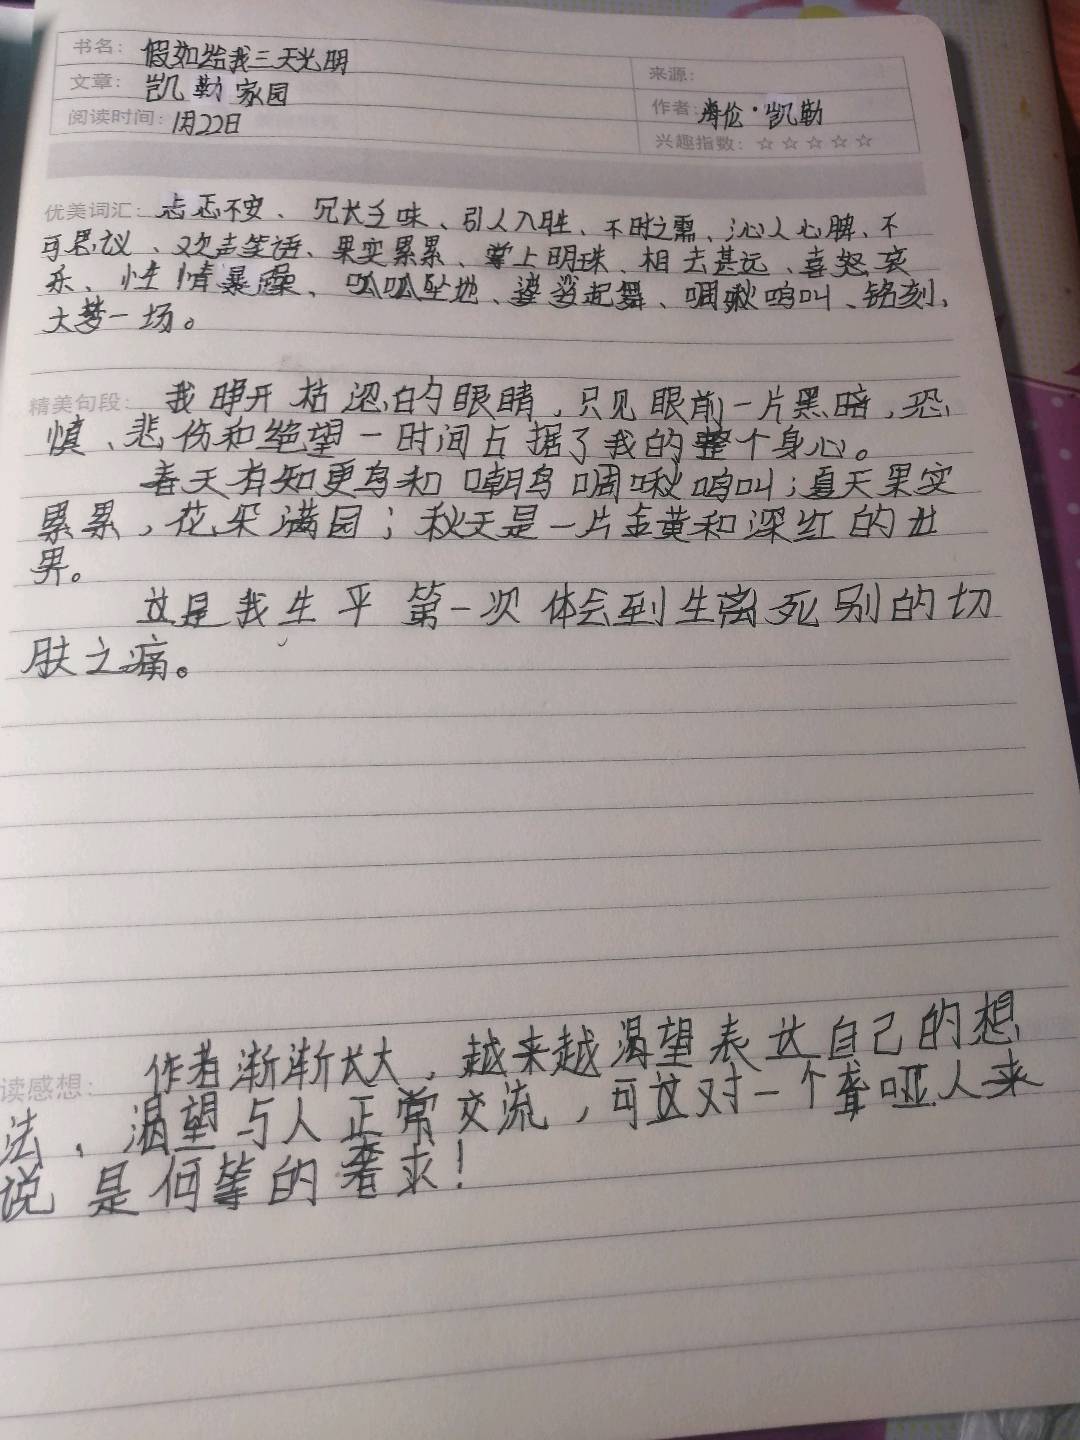 书名：假如给我三天光明
来源：
文章：凯勒家园
作者：海伦·凯勒
阅读时间：1月22日
兴趣指数：☆☆☆☆☆
优美词汇：忐忑不安、冗长乏味、引人入胜、不时之需、沁人心脾、不
可思议、欢声笑语、果实累累、掌上明珠、相去甚远、喜怒哀
乐、性情暴躁、呱呱坠地、婆娑起舞、啁啾鸣叫、铭刻、
大梦一场。
精美句段：我睁开枯涩的眼睛，只见眼前一片黑暗，恐
慎、悲伤和绝望一时间占据了我的整个身心。
春天有知更鸟和嘲鸟啁啾鸣叫；夏天果实
累累，花朵满园；秋天是一片金黄和深红的世
界。
这是我生平第一次体会到生离死别的切
肤之痛。
读感想：作者渐渐长大，越来越渴望表达自己的想
法、渴望与人正常交流，可这对一个聋哑人来
说是何等的奢求！